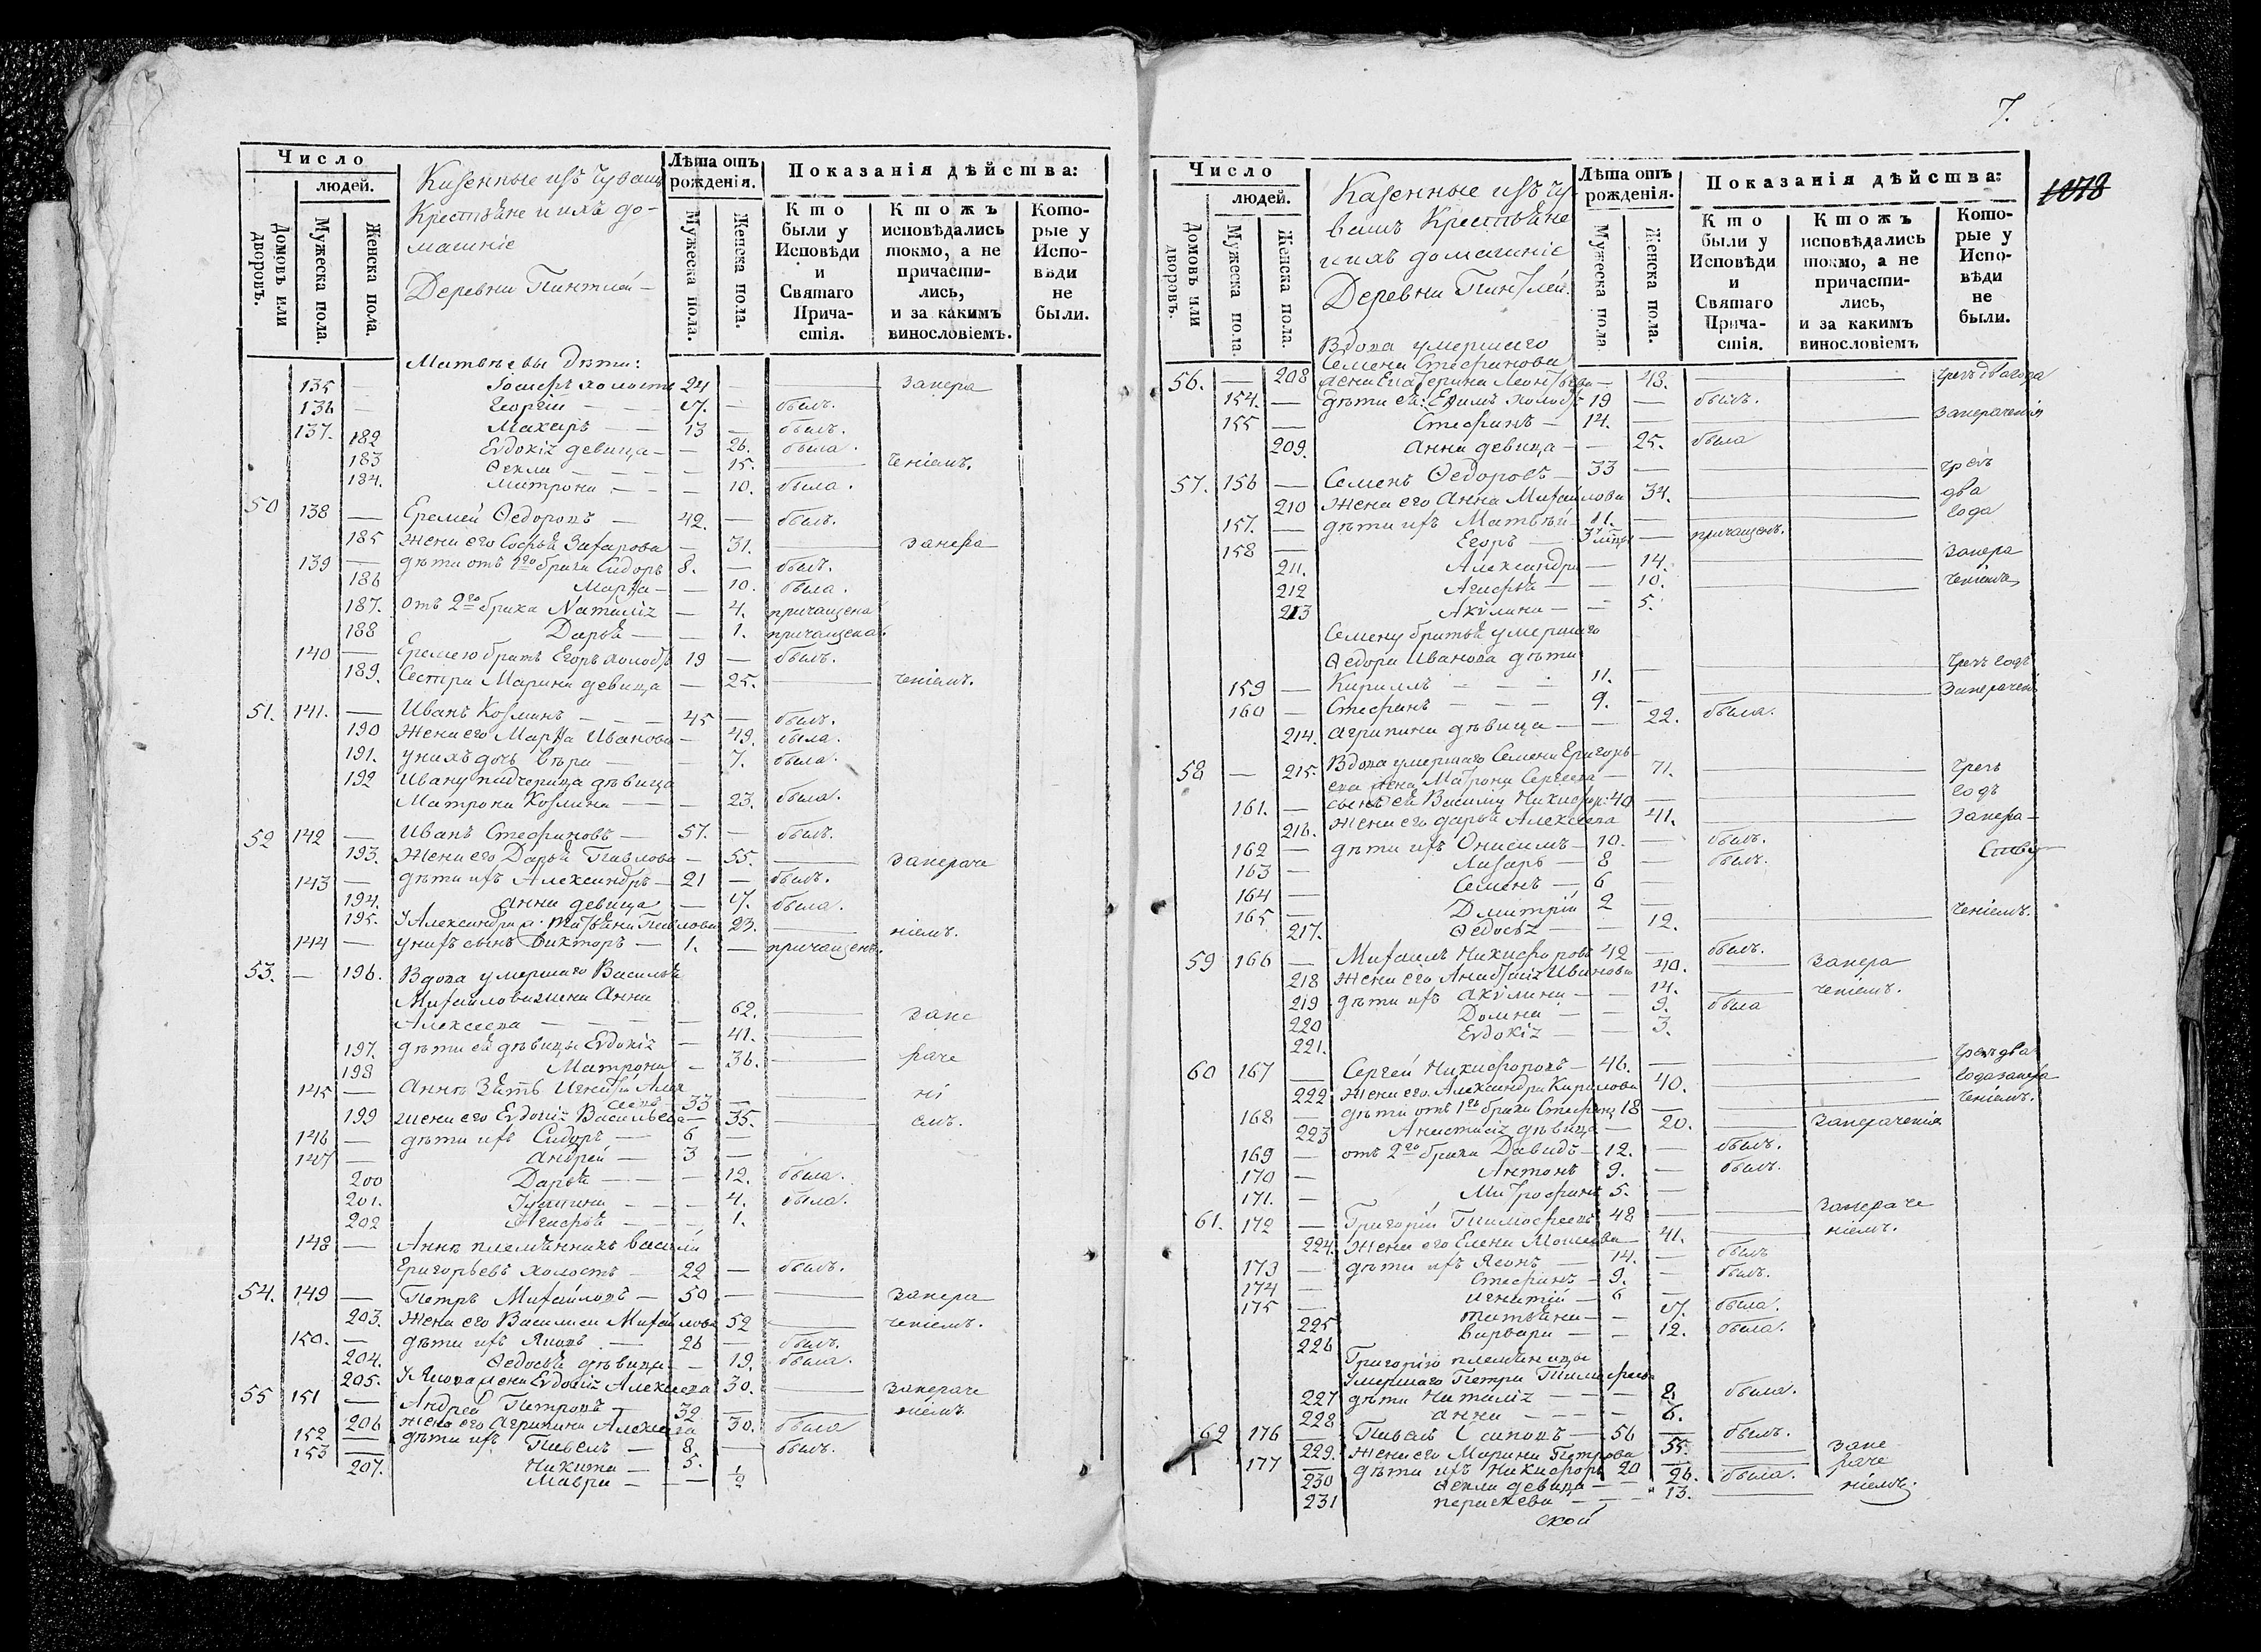 Число
людей.
Домовъ или дворовъ.
Мужеска пола.
Женска пола.
Казенные изъ Чувашъ
Крестьяне и ихъ до-
машніе
Деревни
Лѣта отъ рожденія.
Мужеска пола.
Женска пола.
Показанія дѣйства:
Кто были у Исповѣди и Святаго Причастія.
Ктожъ исповѣдались токмо, а не причастились, и за какимъ винословіемъ.
Которые у Исповѣди не были.
Матвѣевы дѣти:
135 — Іосифъ холостъ 24 — — запера
136 — Георгій — — 17. — былъ.
137. — Макаръ — — 13 — былъ.
182 Евдокія девица — — 26. была.
183 Ѳекла — — — 15. — ченіемъ.
184. Матрона — — — 10. была.
50 138 — Еремей Ѳедоровъ — 42. — былъ.
185 Жена его Софья Захарова — 31. — запера
139 — дѣти отъ 1го брака Сидоръ 8. — былъ.
186 Марѳа — — 10. была.
187. отъ 2го брака Наталія — 4. причащена
188 Дарья — — 1. причащена.
140 — Еремею братъ Егоръ холостъ 19 — былъ.
189. Сестра Марина девица — 25. — ченіемъ.
51. 141. — Иванъ Козминъ — — — 45 — былъ.
190 Жена его Марѳа Иванова — 49. была.
191. у нихъ дочь Вѣра — — 7. была.
192 Ивану падчерица дѣвица
Матрона Козмина — — — 23. была.
52 142 — Иванъ Стефановъ — 57. — былъ.
193. Жена его Дарья Павлова — 55. — запераче
143 — дѣти ихъ Александръ — 21 — былъ.
194. Анна девица — 17. была.
195. У Александра ж. Татьяна Павлова 23. — ніемъ.
144 — у нихъ сынъ Викторъ — 1. — причащенъ.
53. — 196. Вдова умершаго Василья
Михайлова жена Анна
Алексеева — — — — 62. — запе
197. дѣти ея дѣвицы Евдокія — 41. —
198 Матрона — 36. — раче
145 — Аннѣ зять Игнатій Алек
сеевъ — 33 — — ні
199 жена его Евдокія Васильева — 35. — емъ.
146 — дѣти ихъ Сидоръ — 6 —
147 — Андрей — 3 —
200 Дарья — — — 12. была.
201. Устина — — — 4. была.
202 Агафья — — — 1.
148 — Аннѣ племянникъ Василій
Григорьевъ холостъ — 22 — былъ.
54. 149 — Петръ Михайловъ — 50 — — запера
203. Жена его Василиса Михайлова 52 — ченіемъ.
150. — дѣти ихъ Яковъ — 26 — былъ.
204. Ѳедосья дѣвица — — 19. была.
205. У Якова жена Евдокія Алексеева 30. — запераче
55 151 — Андрей Петровъ — 32 — — ніемъ
206 жена его Агрипина Алексеева 30. была
152 — дѣти ихъ Павелъ — 8. — былъ.
153 — Никита — 5.
207. Мавра — — 1/2
7.
1078
Число
людей.
Домовъ или дворовъ.
Мужеска пола.
Женска пола.
Казенные изъ Чу-
вашъ Крестьяне
и ихъ домашніе
Деревни
Лѣта отъ рожденія.
Мужеска пола.
Женска пола.
Показанія дѣйства:
Кто были у Исповѣди и Святаго Причастія.
Ктожъ исповѣдались токмо, а не причастились, и за какимъ винословіемъ
Которые у Исповѣди не были.
Вдова умершаго
Семена Стефанова
56. — 208 жена Екатерина Леонтьева — 43. — — чрезъ два года
154. — дѣти ея: Ефимъ холостъ 19 — былъ.
155 — Стефанъ — 14. — — заперачения
209. Анна девица — — 25. была
57. 156 — Семенъ Ѳедоровъ — 33 — — — чрезъ
210 Жена его Анна Михайлова 34. — — два
157. — дѣти ихъ Матвѣй 11. — — — года
158 — Егоръ — 3 мѣсяцъ — причащенъ.
211. Александра — 14. — — запера
212 Агафья — — 10. — — ченіемъ
213 Акулина — — 5.
Семену братья умершаго
Ѳедора Иванова дѣти
159 — Кириллъ — — — 11. — — — чрезъ годъ
160 — Стефанъ — — — 9. — — — заперачені
214. Агрипина дѣвица — — 22. была.
58 — 215. Вдова умершаго Семена Григорь-
ева жена Матрона Сергеева — 71. — — чрезъ
161. — сынъ ея Василій Никифор: 40 — — — годъ
216. Жена его Дарья Алексеева 41. — — запера-
162 — дѣти ихъ Онисимъ — 10. — былъ.
163 — Лазарь — 8 — былъ.
164 — Семенъ — 6 —
165 — Дмитрій 2 —
217. Ѳедосья — — 12. — — ченіемъ.
59 166 — Михаилъ Никифоровъ 42 — былъ.
218 Жена его Анастасія Иванова 40. — запера
219 дѣти ихъ Акулина — — 14. — ченіемъ.
220 Домна — — 9. была
221. Евдокія — — 3.
60 167 — Сергей Никифоровъ — 46. — — — чрезъ два
222 Жена его Александра Кирилова 40. — — года запера
168 — дѣти отъ 1го брака Стефанъ 18 — — — ченіемъ.
223 Анастасія дѣвица — 20. — заперачения
169 — отъ 2го брака Давидъ — 12. — былъ.
170 — Антонъ 9. — былъ.
171. — Митрофанъ 5. —
61. 172 — Григорій Тимофеевъ 48 — — запераче
224. Жена его Елена Моисеева — 41. — ніемъ.
173 — дѣти ихъ Ясонъ — 14. — былъ
174 — Стефанъ — 9. — былъ.
175 — Игнатій — 6
225 Татьяна — — 17. была.
226 Варвара — — 12. была.
Григорію племянницы
умершаго Петра Тимофеева
227 дѣти Наталія — — — 8. была.
228 Анна — — — — 6.
62 176 — Павелъ — 56 — былъ.
229. Жена его Марина Петрова 55. — запе
177 — дѣти ихъ Никифоръ 20 — — раче
230 Ѳекла девица — — 26. была. ніемъ.
231 Параскева — — — 13. —
ской